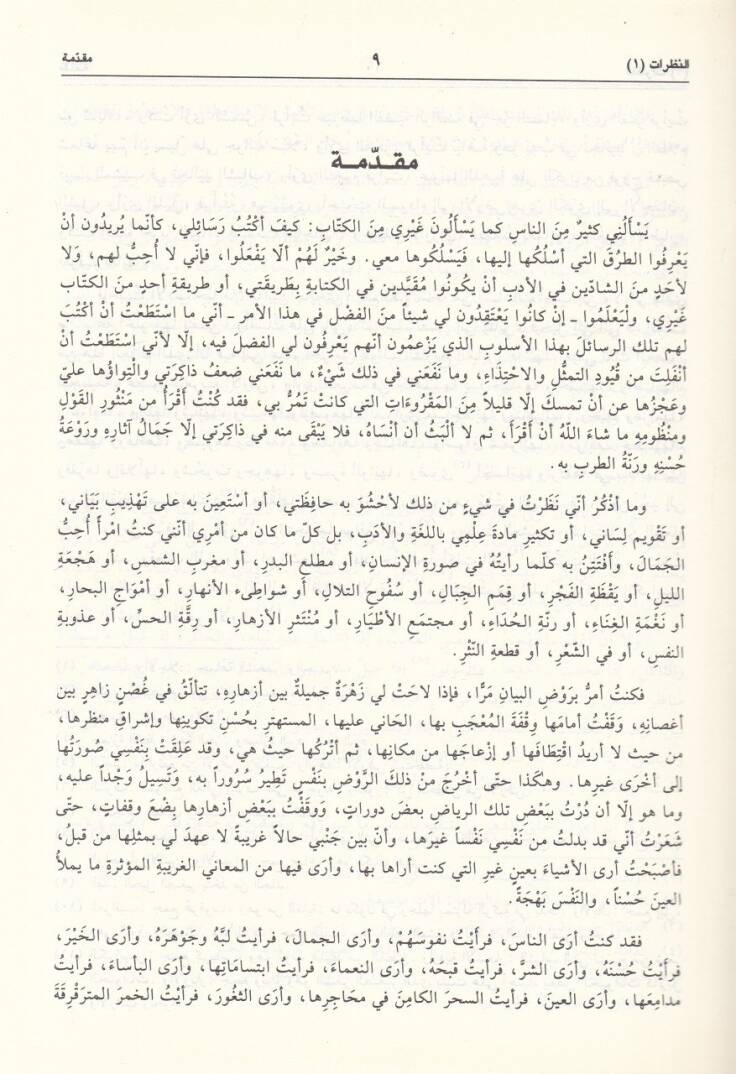 النظرات (١) ٩ مقدّمة
مقدّمـة
يَسْأَلُنِي كثيرٌ مِنَ الناسِ كما يَسْأَلُونَ غَيْرِي مِنَ الكتّابِ: كيفَ أكْتُبُ رَسَائِلي، كأنّما يُريدُون أنْ
يَعْرِفُوا الطرُقَ التي أسْلُكُها إليها، فَيَسْلُكُوها معي. وخَيْرٌ لَهُمْ ألّا يَفْعَلُوا، فإنّي لا أُحِبُّ لهم، وَلا
لأحَدٍ منَ الشادّين في الأدبِ أنْ يكونُوا مُقَيَّدين في الكتابةِ بِطَريقَتي، أو طريقةِ أحدٍ منَ الكتّاب
غَيْرِي، ولْيَعْلَمُوا ـ إنْ كانُوا يَعْتَقِدُون لي شيئاً منَ الفضْل في هذا الأمر ـ أنّي ما اسْتَطَعْتُ أنْ أكْتُبَ
لهم تلك الرسائلَ بهذا الأسلوبِ الذي يَزْعمُون أنّهم يَعْرِفُون لي الفضلَ فيه، إلّا لأنّي اسْتَطَعْتُ أنْ
أنْفَلِتَ من قُيُودِ التمثُّلِ والاحْتِذَاءِ، وما نَفَعَني في ذلك شَيْءٌ، ما نَفَعَني ضعفُ ذاكِرَتي والْتِواؤُها عليّ
وعَجْزُها عن أنْ تمسكَ إلّا قليلاً مِنَ المَقْرُوءَاتِ التي كانتْ تَمُرُّ بي، فقد كُنْتُ أقْرَأُ من مَنْثُورِ القَوْلِ
ومنْظُومِهِ ما شاءَ اللّهُ أنْ أقْرَأَ، ثم لا ألْبَثُ أن أنْسَاهُ، فلا يَبْقَى منه في ذاكِرَتي إلّا جَمَالُ آثارِهِ ورَوْعَةُ
حُسْنِهِ ورَنّةُ الطربِ به.
وما أذْكُرُ أنّي نَظَرْتُ في شيءٍ من ذلك لأحْشُوَ به حافِظَتي، أو أسْتَعِينَ به على تَهْذِيبِ بَيَاني،
أو تَقْويم لِسَاني، أو تكثيرِ مادةِ عِلْمِي باللغةِ والأدَبِ، بل كلّ ما كان من أمْرِي أنّني كنتُ امْرأً أُحِبُّ
الجَمَالَ، وأفْتَتِنُ به كلّما رأيتُهُ في صورةِ الإنسانِ، أو مطلعِ البدرِ، أو مغربِ الشمسِ، أو هَجْعَةِ
الليلِ، أو يَقْظَةِ الفَجْرِ، أو قِمَمِ الجِبَالِ، أو سُفُوحِ التلالِ، أو شواطِىءِ الأنهارِ، أو أمْوَاجِ البحارِ،
أو نَغْمَةِ الغِنَاءِ، أو رنّةِ الحُدَاءِ، أو مجتمَعِ الأطْيَارِ، أو مُنْتَثرِ الأزهارِ، أو رِقَّةِ الحسِّ، أو عذوبةِ
النفسِ، أو في الشّعْرِ، أو قطعةِ النّثْرِ.
فكنتُ أمرُّ برَوْضِ البيانِ مَرّا، فإذا لاحَتْ لي زَهْرَةٌ جميلةٌ بين أزهارِهِ، تتألّقُ في غُصْنٍ زاهِرٍ بين
أغصانِهِ، وَقَفْتُ أمامَها وِقْفَةَ المُعْجَبِ بها، الحَاني عليها، المستهترِ بحُسْنِ تكوينِها وإشراقِ منظرِها،
من حيث لا أريدُ اقْتِطَافَها أو إزْعاجَها من مكانِها، ثم أتْرُكُها حيثُ هي، وقد عَلِقَتْ بِنَفْسِي صُورَتُها
إلى أخْرَى غيرِها. وهكَذا حتّى أخْرُجَ مِنْ ذلكَ الرَّوْضِ بنَفْسٍ تَطِيرُ سُرُوراً به، وَتَسِيلُ وَجْداً عليه،
وما هو إلّا أن دُرْتُ ببَعْضِ تلك الرياضِ بعضَ دوراتٍ، وَوَقَفْتُ بِبَعْضِ أزهارِها بِضْعَ وقفاتٍ، حتّى
شَعَرْتُ أنّي قد بدلتُ من نَفْسِي نَفْساً غيرَها، وأنّ بين جَنْبي حالاً غريبةً لا عهدَ لي بمثلِها من قبلُ،
فأصْبَحْتُ أرى الأشياءَ بعينٍ غيرِ التي كنت أراها بها، وأرَى فيها من المعاني الغريبةِ المؤثرةِ ما يملأُ
العينَ حُسْناً، والنَّفْسَ بَهْجَةً.
فقد كنتُ أرَى الناسَ، فرأَيْتُ نفوسَهُمْ، وأرَى الجمالَ، فرأيتُ لبَّهُ وجَوْهَرَهُ، وأرَى الخَيْرَ،
فرأَيْتُ حُسْنَهُ، وأرَى الشرَّ، فرأيتُ قبحَهُ، وأرَى النعماءَ، فرأيتُ ابتسامَاتِها، وأرَى البأساءَ، فرأيتُ
مدامِعَها، وأرَى العينَ، فرأيتُ السحرَ الكامِنَ في مَحَاجِرِها، وأرَى الثغُورَ، فرأيْتُ الخمرَ المترَقْرِقَةَ